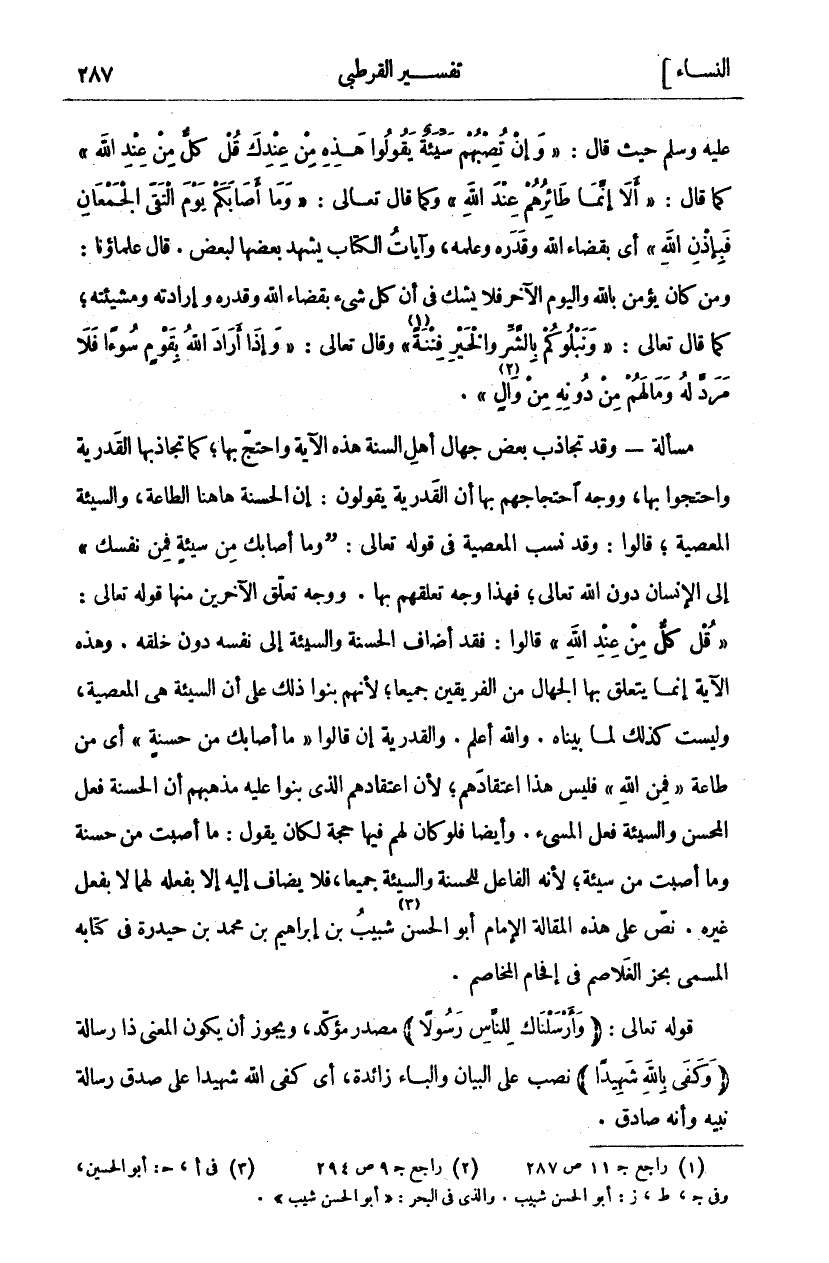 النساء ] تفسير القرطبى ٢٨٧
عليه وسلم حيث قال : « وَإِنْ تُصِبْهُمْ سَيِّئَةٌ يَقُولُوا هَـذِهِ مِنْ عِنْدِكَ قُلْ كُلٌّ مِنْ عِنْدِ اللهِ »
كما قال : « أَلَا إِنَّمَا طَائِرُهُمْ عِنْدَ اللهِ » وكما قال تعـالى : « وَمَا أَصَابَكُمْ يَوْمَ الْتَقَى الْجَمْعَانِ
فَبِإِذْنِ اللهِ » أى بقضاء الله وقَدَره وعلمه، وآياتُ الكتاب يشهد بعضها لبعض . قال علماؤنا :
ومن كان يؤمن بالله واليوم الآخر فلا يشك فى أن كل شىء بقضاء الله وقدره وإرادته ومشيئته؛
كما قال تعالى : « وَنَبْلُوكُمْ بِالشَّرِّ والْخَيْرِ فِتْنَةً (١) » وقال تعالى : « وَإِذَا أَرَادَ اللهُ بِقَوْمٍ سُوءًا فَلَا
مَرَدَّ لَهُ وَمَالَهُمْ مِنْ دُونِهِ مِنْ وَالٍ (٢) » .
مسألة — وقد تجاذب بعض جهال أهل السنة هذه الآية واحتجّ بها؛ كما تجاذبها القَدرية
واحتجوا بها، ووجه ٱحتجاجهم بها أن القَدرية يقولون : إن الحسنة هاهنا الطاعة، والسيئة
المعصية ؛ قالوا : وقد نسب المعصية فى قوله تعالى : « وما أصابك مِن سيئةٍ فمِن نفسك »
إلى الإنسان دون الله تعالى؛ فهذا وجه تعلقهم بها . ووجه تعلّق الآخرين منها قوله تعالى :
« قُلْ كلٌّ مِنْ عِنْدِ اللهِ » قالوا : فقد أضاف الحسنة والسيئة إلى نفسه دون خلقه . وهذه
الآية إنمـا يتعلق بها الجهال من الفريقين جميعا؛ لأنهم بنوا ذلك على أن السيئة هى المعصية،
وليست كذلك لمـا بيناه . والله أعلم . والقدرية إن قالوا « ما أصابك من حسنةٍ » أى من
طاعة « فمِن اللهِ » فليس هذا اعتقادَهم؛ لأن اعتقادهم الذى بنوا عليه مذهبهم أن الحسنة فعل
المحسن والسيئة فعل المسىء . وأيضا فلو كان لهم فيها حجة لكان يقول : ما أصبت من حسنة
وما أصبت من سيئة؛ لأنه الفاعل للحسنة والسيئة جميعا، فلا يضاف إليه إلا بفعله لهما لا بفعل
غيره . نصّ على هذه المقالة الإمام أبو الحسن (٣) شبيبُ بن إبراهيم بن محمد بن حيدرة فى كتابه
المسمى بحز الغَلاصم فى إلحام المخاصم .
قوله تعالى : ﴿ وَأَرْسَلْنَاكَ لِلنَّاسِ رَسُولًا ﴾ مصدر مؤكّد، ويجوز أن يكون المعنى ذا رسالة
﴿ وَكَفَى بِاللهِ شَهِيدًا ﴾ نصب على البيان والبـاء زائدة، أى كفى الله شهيدا على صدق رسالة
نبيه وأنه صادق .
(١) راجع جـ ١١ ص ٢٨٧ (٢) راجع جـ ٩ ص ٢٩٤ (٣) فى أ ، حـ : أبو الحسين،
وفى جـ ، ط ، ز : أبو الحسن شبيب . والذى فى البحر : « أبو الحسن شيب » .